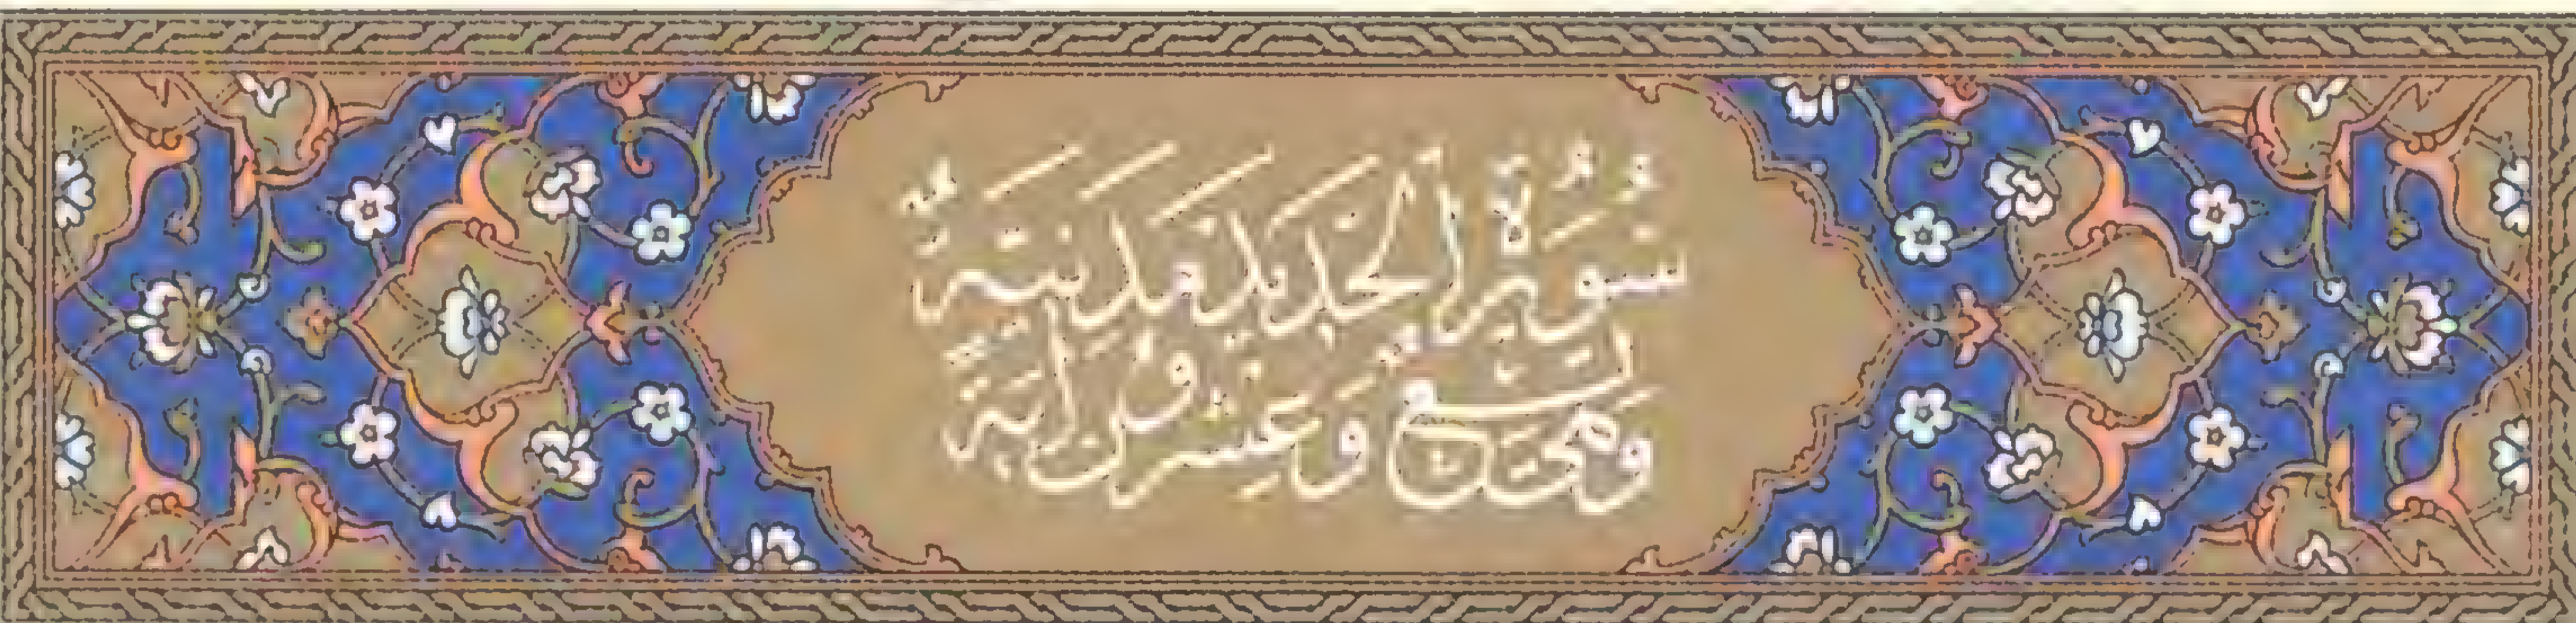 سُورَةُ الْحَدِيدِ مَدَنِيَّةٌ
وَهِيَ تِسْعٌ وَعِشْرُونَ آيَةً